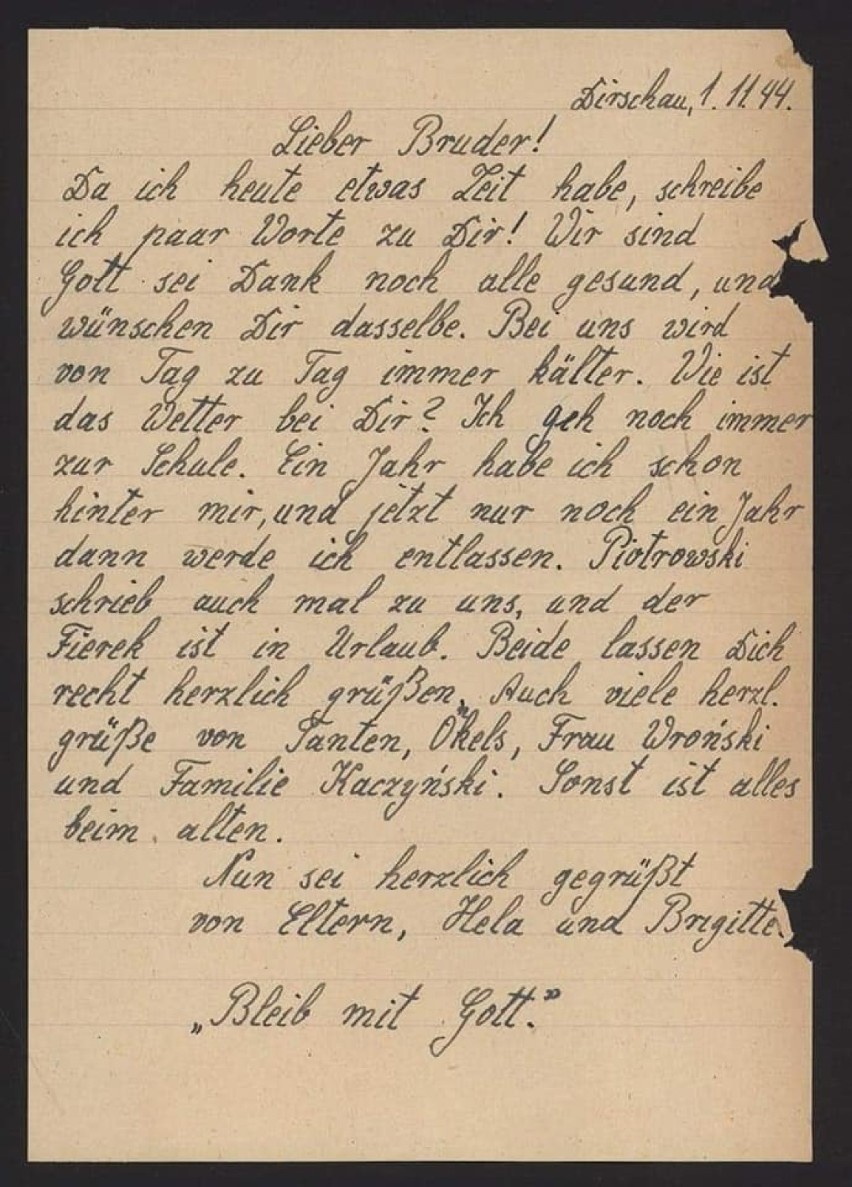 Dirschau, 1. 11. 44.
Lieber Bruder!
Da ich heute etwas Zeit habe, schreibe
ich paar Worte zu Dir! Wir sind
Gott sei Dank noch alle gesund, und
wünschen Dir dasselbe. Bei uns wird
von Tag zu Tag immer kälter. Wie ist
das Wetter bei Dir? Ich geh noch immer
zur Schule. Ein Jahr habe ich schon
hinter mir, und jetzt nur noch ein Jahr
dann werde ich entlassen. Piotrowski
schrieb auch mal zu uns, und der
Fierek ist in Urlaub. Beide lassen Dich
recht herzlich grüßen. Auch viele herzl.
grüße von Tanten, Ökels, Frau Wroński
und Familie Kaczyński. Sonst ist alles
beim alten.
Nun sei herzlich gegrüßt
von Eltern, Hela und Brigitte.
„Bleib mit Gott.”